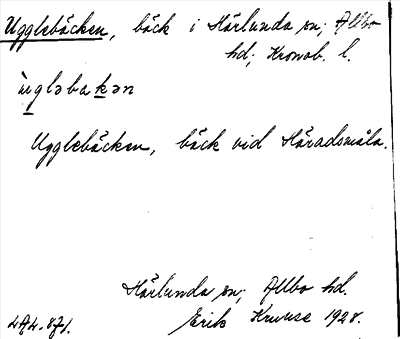 Ugglebäcken, bäck i Härlunda sn; Allbo
hd; Kronob. l.
ùgləbakən
Ugglebäcken, bäck vid Häradsmåla.
Härlunda sn; Allbo hd.
Erik Kruuse 1928.